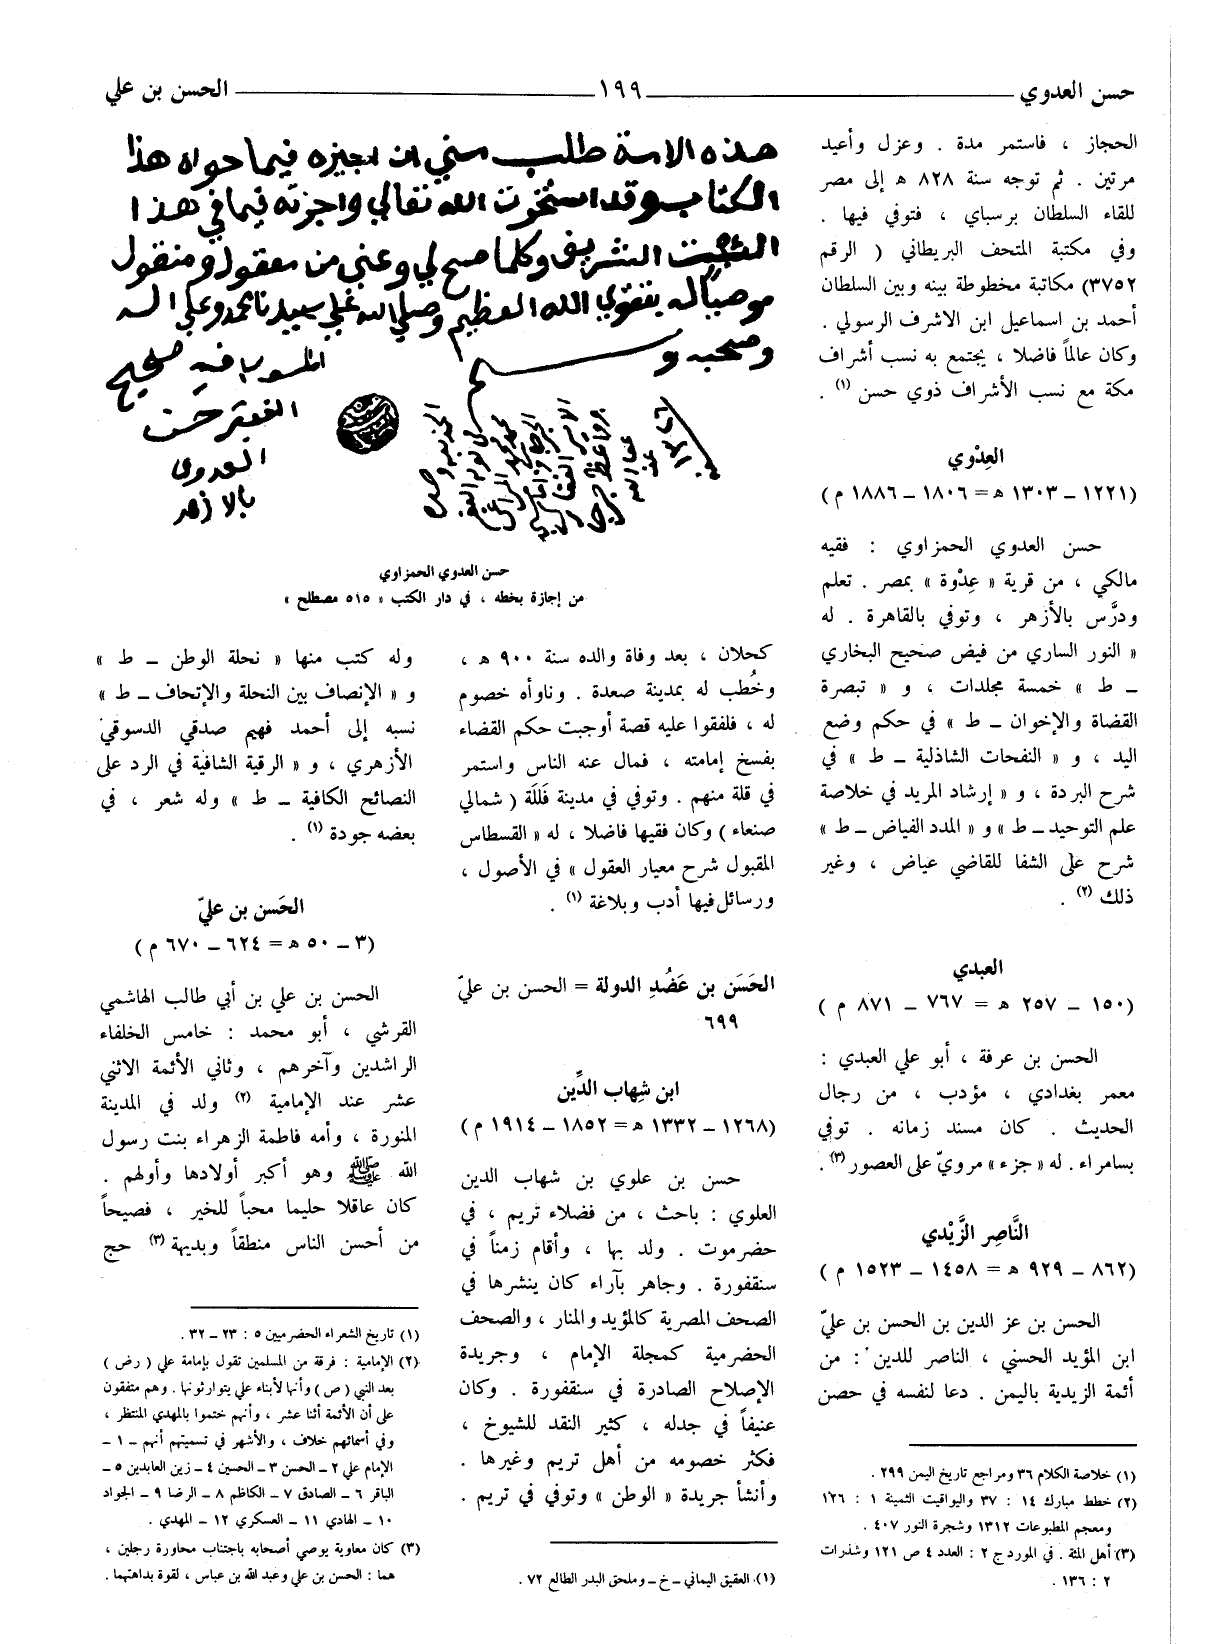 حسن العدوي ١٩٩ الحسن بن علي
الحجاز ، فاستمر مدة . وعزل وأعيد
مرتين . ثم توجه سنة ٨٢٨ ه إلى مصر
للقاء السلطان برسباي ، فتوفي فيها .
وفي مكتبة المتحف البريطاني ( الرقم
٣٧٥٢) مكاتبة مخطوطة بينه وبين السلطان
أحمد بن اسماعيل ابن الاشرف الرسولي .
وكان عالماً فاضلا ، يجتمع به نسب أشراف
مكة مع نسب الأشراف ذوي حسن (١) .
العِدْوي
(١٢٢١ – ١٣٠٣ ه = ١٨٠٦ – ١٨٨٦ م )
حسن العدوي الحمزاوي : فقيه
مالكي ، من قرية « عِدْوة » بمصر . تعلم
ودرَّس بالأزهر ، وتوفي بالقاهرة . له
« النور الساري من فيض صحيح البخاري
– ط » خمسة مجلدات ، و « تبصرة
القضاة والإخوان – ط » في حكم وضع
اليد ، و « النفحات الشاذلية – ط » في
شرح البردة ، و « إرشاد المريد في خلاصة
علم التوحيد – ط » و « المدد الفياض – ط »
شرح على الشفا للقاضي عياض ، وغير
ذلك (٢) .
العبدي
(١٥٠ – ٢٥٧ ه = ٧٦٧ – ٨٧١ م )
الحسن بن عرفة ، أبو علي العبدي :
معمر بغدادي ، مؤدب ، من رجال
الحديث . كان مسند زمانه . توفي
بسامراء . له « جزء » مرويّ على العصور (٣) .
النَّاصِر الزَّيْدي
(٨٦٢ – ٩٢٩ ه = ١٤٥٨ – ١٥٢٣ م )
الحسن بن عز الدين بن الحسن بن عليّ
ابن المؤيد الحسني ، الناصر للدين : من
أئمة الزيدية باليمن . دعا لنفسه في حصن
(١) خلاصة الكلام ٣٦ ومراجع تاريخ اليمن ٢٩٩ .
(٢) خطط مبارك ١٤ : ٣٧ واليواقيت الثمينة ١ : ١٢٦
ومعجم المطبوعات ١٣١٢ وشجرة النور ٤٠٧ .
(٣) أهل المئة . في المورد ج ٢ : العدد ٤ ص ١٢١ وشذرات
٢ : ١٣٦ .
هذه الامة طلب مني ان اجيزه فيما حواه هذا
الكتاب وقد استخرت الله تعالى واجزته فيما في هذا
الثبت الشريف وكلما صح لي وعني من معقول ومنقول
موصيا له بتقوى الله العظيم وصلى الله على سيدنا محمد وعلى اله
وصحبه وسلم
الفقير حسن
العدوي
بالازهر
حسن العدوي الحمزاوي
من إجازة بخطه ، في دار الكتب « ٥١٥ مصطلح »
كحلان ، بعد وفاة والده سنة ٩٠٠ ه ،
وخُطب له بمدينة صعدة . وناوأه خصوم
له ، فلفقوا عليه قصة أوجبت حكم القضاء
بفسخ إمامته ، فمال عنه الناس واستمر
في قلة منهم . وتوفي في مدينة فَلَلَة ( شمالي
صنعاء ) وكان فقيها فاضلا ، له « القسطاس
المقبول شرح معيار العقول » في الأصول ،
ورسائل فيها أدب وبلاغة (١) .
الحَسَن بن عَضُدِ الدولة = الحسن بن عليّ
٦٩٩
ابن شِهاب الدِّين
(١٢٦٨ – ١٣٣٢ ه = ١٨٥٢ – ١٩١٤ م )
حسن بن علوي بن شهاب الدين
العلوي : باحث ، من فضلاء تريم ، في
حضرموت . ولد بها ، وأقام زمناً في
سنقفورة . وجاهر بآراء كان ينشرها في
الصحف المصرية كالمؤيد والمنار ، والصحف
الحضرمية كمجلة الإمام ، وجريدة
الإصلاح الصادرة في سنقفورة . وكان
عنيفاً في جدله ، كثير النقد للشيوخ ،
فكثر خصومه من أهل تريم وغيرها .
وأنشأ جريدة « الوطن » وتوفي في تريم .
(١) العقيق اليماني – خ – وملحق البدر الطالع ٧٢ .
وله كتب منها « نحلة الوطن – ط »
و « الإنصاف بين النحلة والإتحاف – ط »
نسبه إلى أحمد فهيم صدقي الدسوقي
الأزهري ، و « الرقية الشافية في الرد على
النصائح الكافية – ط » وله شعر ، في
بعضه جودة (١) .
الحَسن بن عليّ
(٣ – ٥٠ ه = ٦٢٤ – ٦٧٠ م )
الحسن بن علي بن أبي طالب الهاشمي
القرشي ، أبو محمد : خامس الخلفاء
الراشدين وآخرهم ، وثاني الأئمة الاثني
عشر عند الإمامية (٢) ولد في المدينة
المنورة ، وأمه فاطمة الزهراء بنت رسول
الله ﷺ وهو أكبر أولادها وأولهم .
كان عاقلا حليما محباً للخير ، فصيحاً
من أحسن الناس منطقاً وبديهة (٣) حج
(١) تاريخ الشعراء الحضرميين ٥ : ٢٣ – ٣٢ .
(٢) الإمامية : فرقة من المسلمين تقول بإمامة علي ( رض )
بعد النبي ( ص ) وأنها لأبناء علي يتوارثونها . وهم متفقون
على أن الأئمة أثنا عشر ، وأنهم ختموا بالمهدي المنتظر ،
وفي أسمائهم خلاف ، والأشهر في تسميتهم أنهم – ١ –
الإمام علي ٢ – الحسن ٣ – الحسين ٤ – زين العابدين ٥ –
الباقر ٦ – الصادق ٧ – الكاظم ٨ – الرضا ٩ – الجواد
١٠ – الهادي ١١ – العسكري ١٢ – المهدي .
(٣) كان معاوية يوصي أصحابه باجتناب محاورة رجلين ،
هما : الحسن بن علي وعبد الله بن عباس ، لقوة بداهتهما .